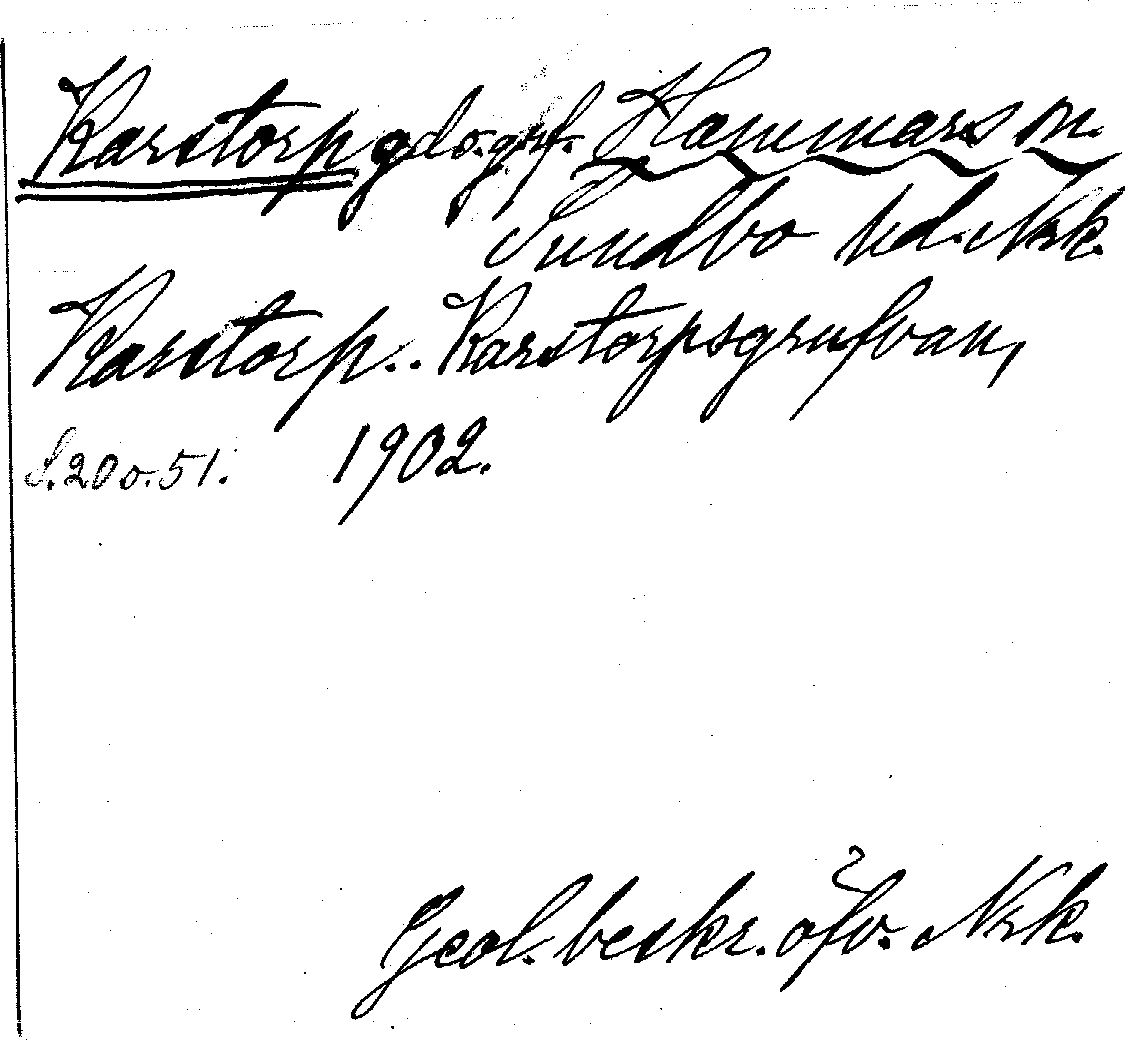 Karstorp gd o. grf. Hammars sn.
Sundbo hd. Nrk.
Karstorp.. Karstorpsgrufvan,
S. 20 o. 51. 1902.
Geol. beskr. öfv. Nrk.